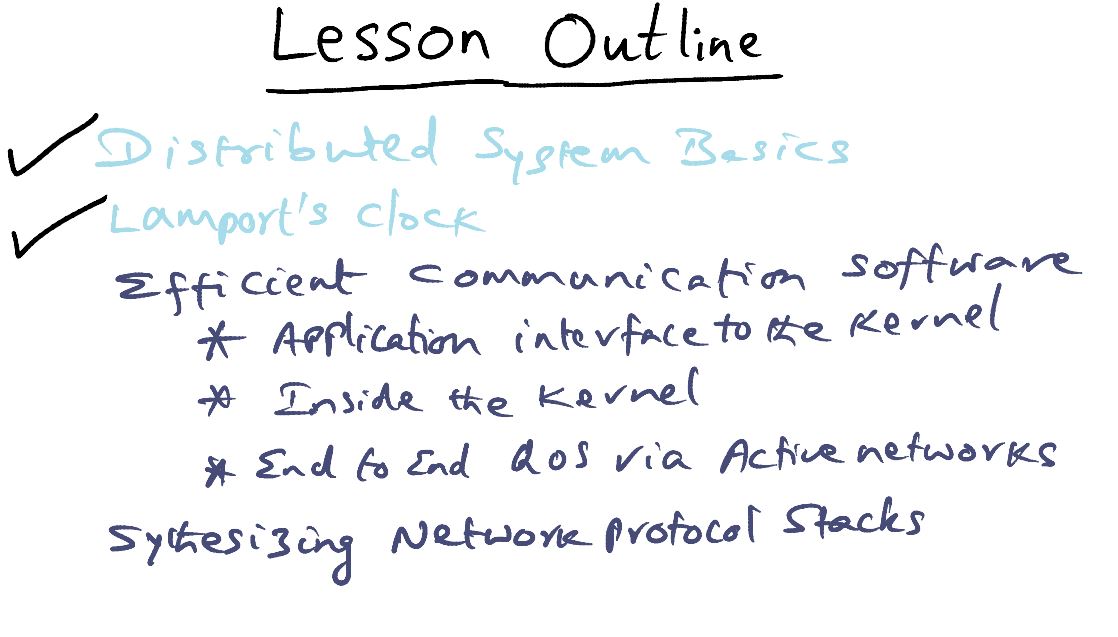 Lesson Outline
✓ Distributed System Basics
✓ Lamport's Clock
Efficient Communication software
* Application interface to the Kernel
* Inside the Kernel
* End to End QOS via Active networks
Sythesizing Network protocol Stacks